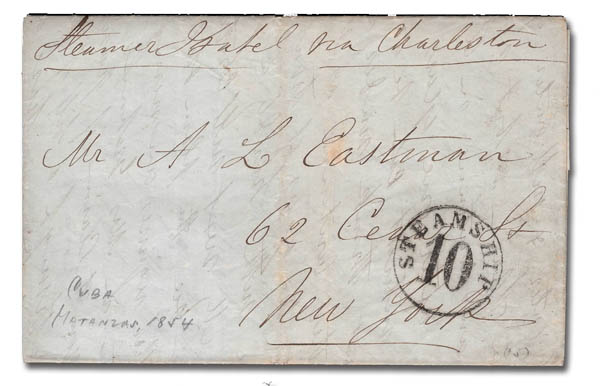 Steamer Isabel via Charleston
Mr A L Eastman
62 Cedar St
STEAMSHIP
10
New York
CUBA
MATANZAS, 1854